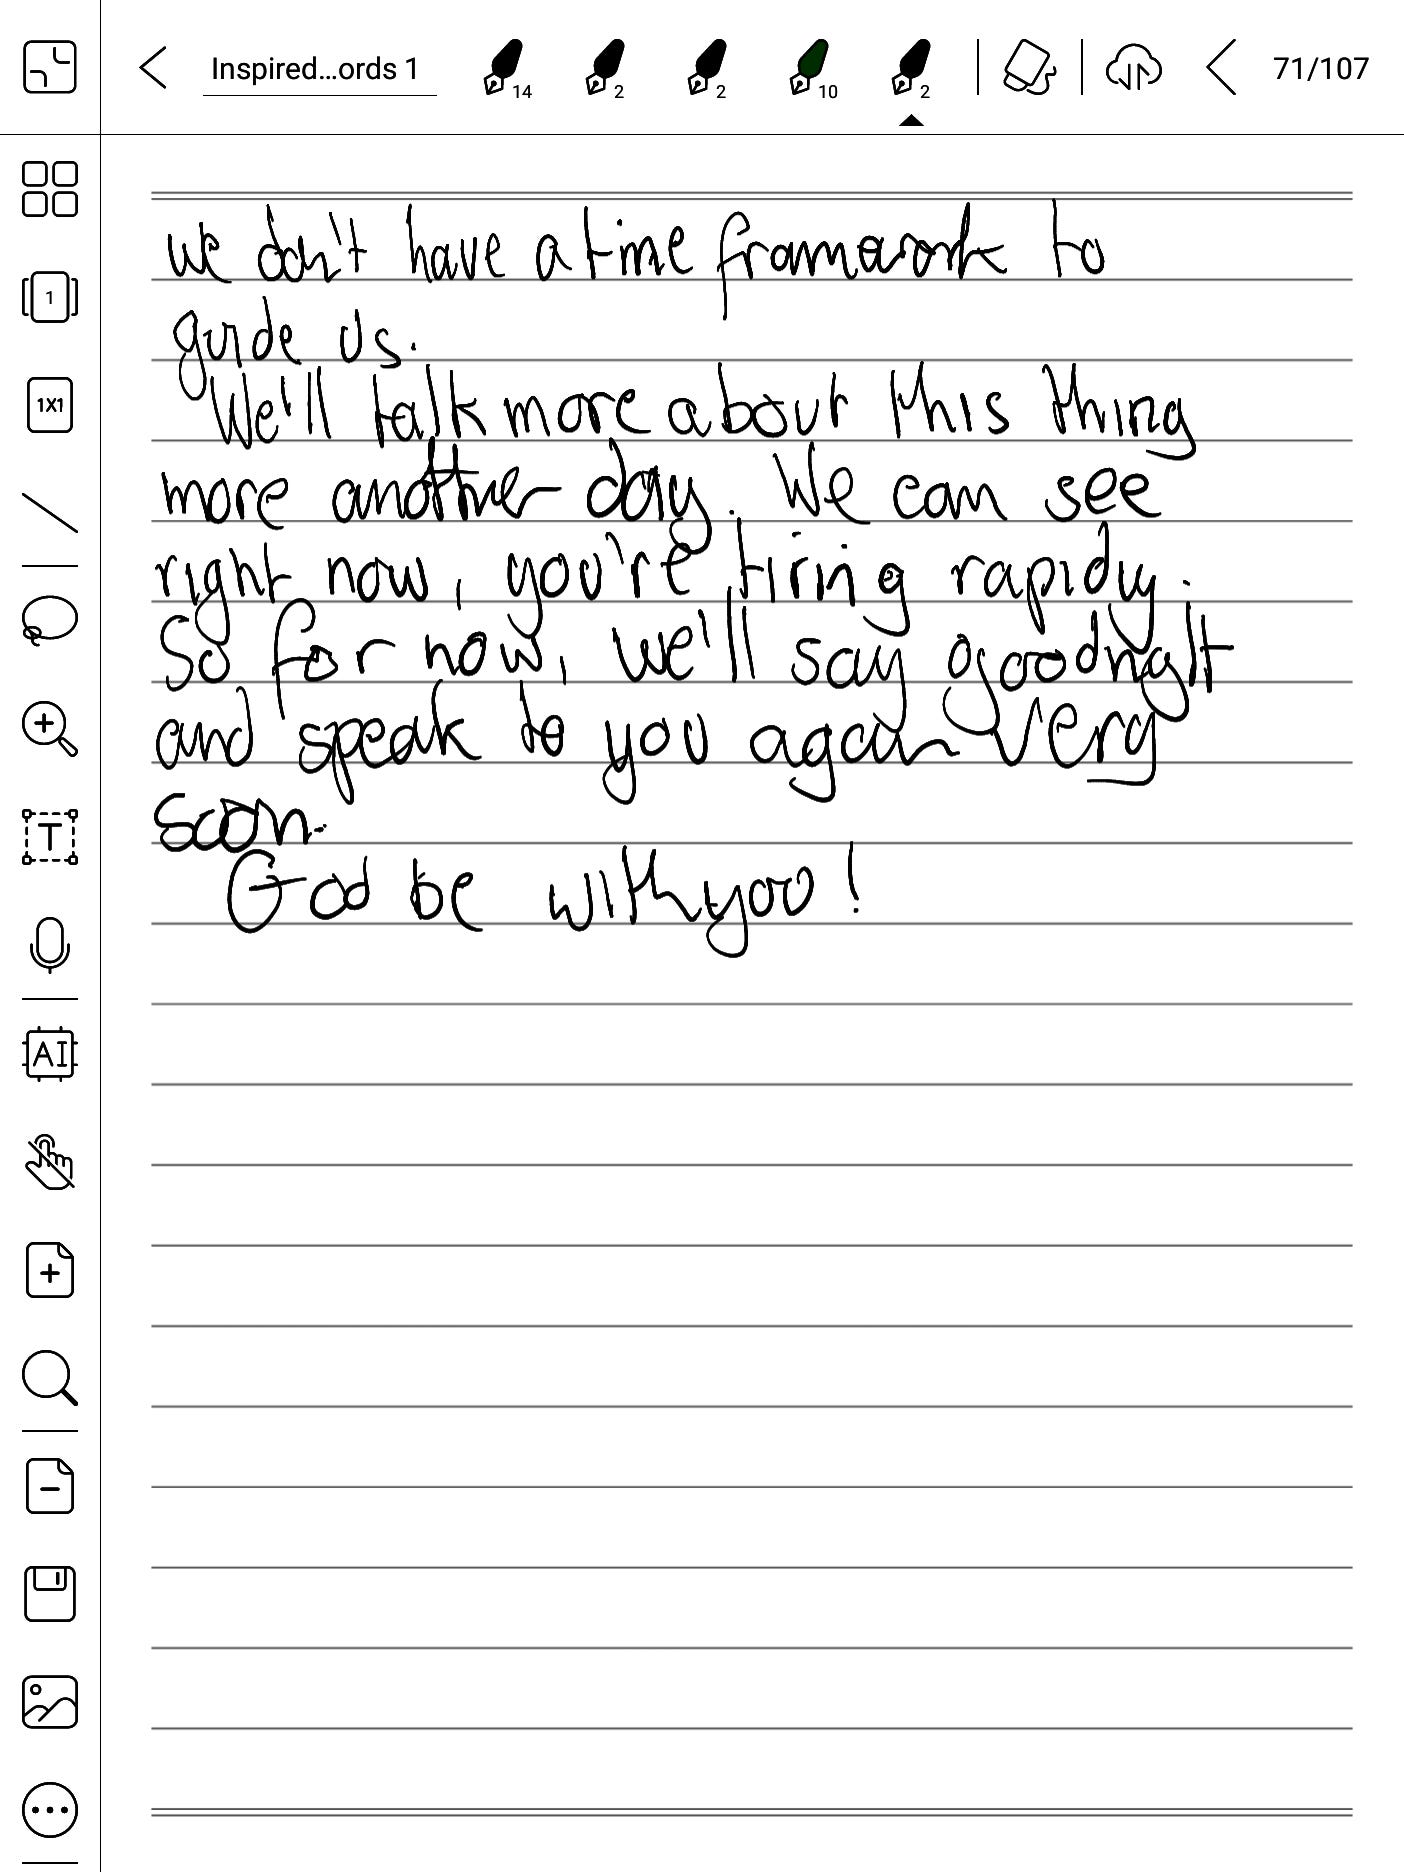 Inspired...ords 1
14
2
2
10
2
71/107
1
1X1
T
AI
we don't have a time framework to
guide us.
We'll talk more about this thing
more another day. We can see
right now, you're tiring rapidly.
So for now, we'll say goodnight
and speak to you again very
soon.
God be with you!